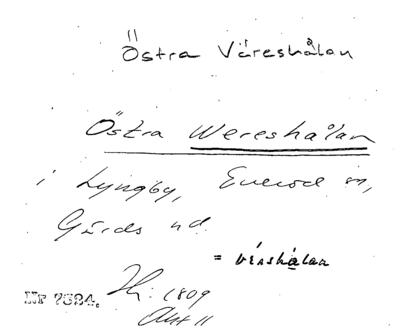 Östra Väreshålan
Östra Wereshålan
i Lyngby, Everöd sn,
Gärds hd.
= vä́rshålan
Nr 7524. 1809
Akt 11